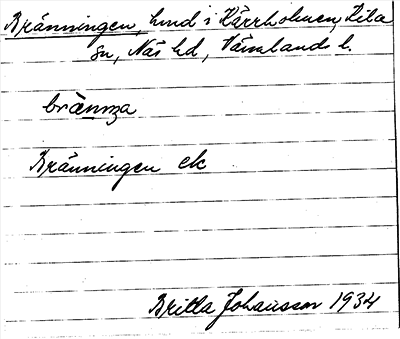 Bränningen, lund i Kärrholmen, Kila
sn, Näs hd, Värmlands l.
brænːa
Bränningen ek
Britta Johansson 1934